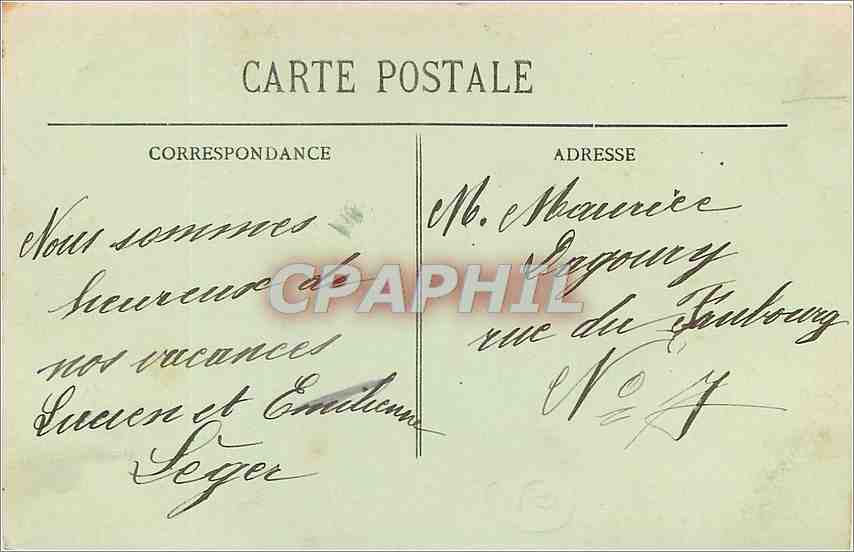 CARTE POSTALE
CORRESPONDANCE
ADRESSE
Nous sommes
heureux de
nos vacances
Lucien et Emilienne
Léger
M. Maurice
Dagoury
rue du Faubourg
No 7
CPAPHIL